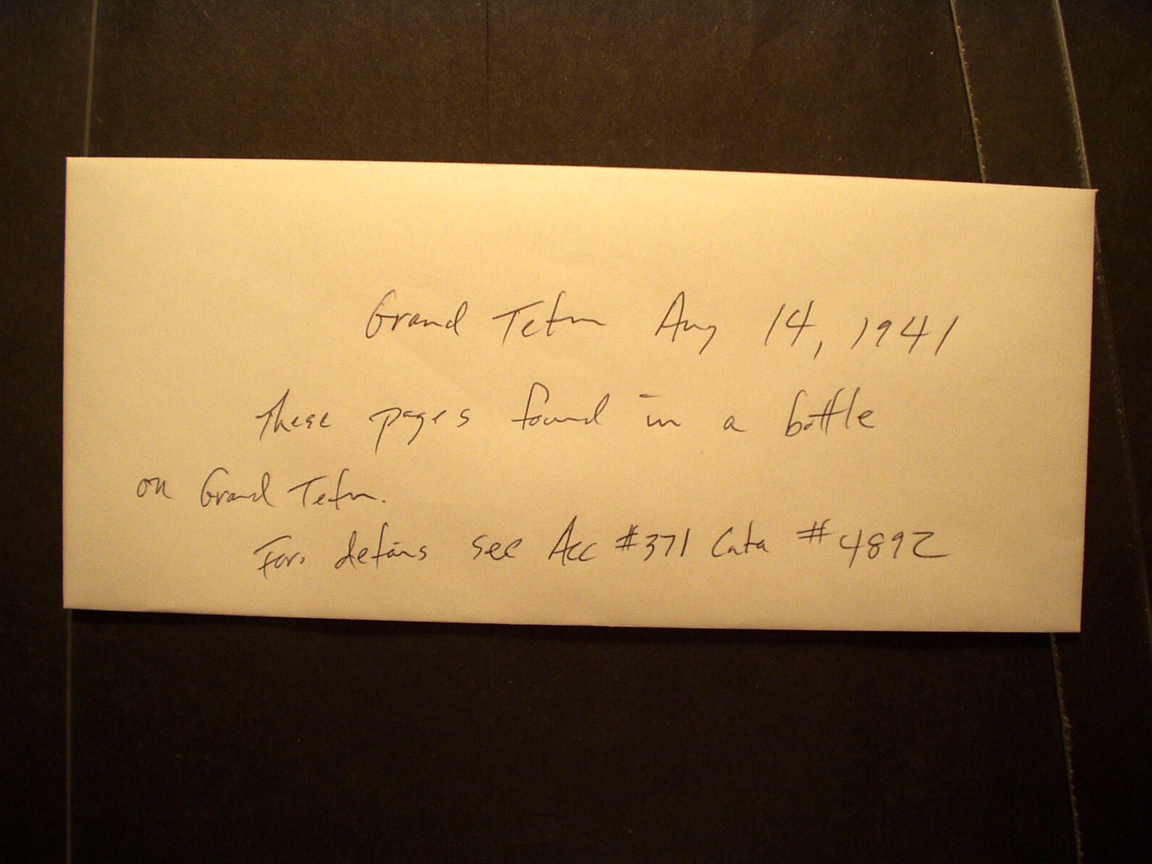 Grand Teton Aug 14, 1941
These pages found in a bottle
on Grand Teton.
For details see Acc #371 Cata #4892